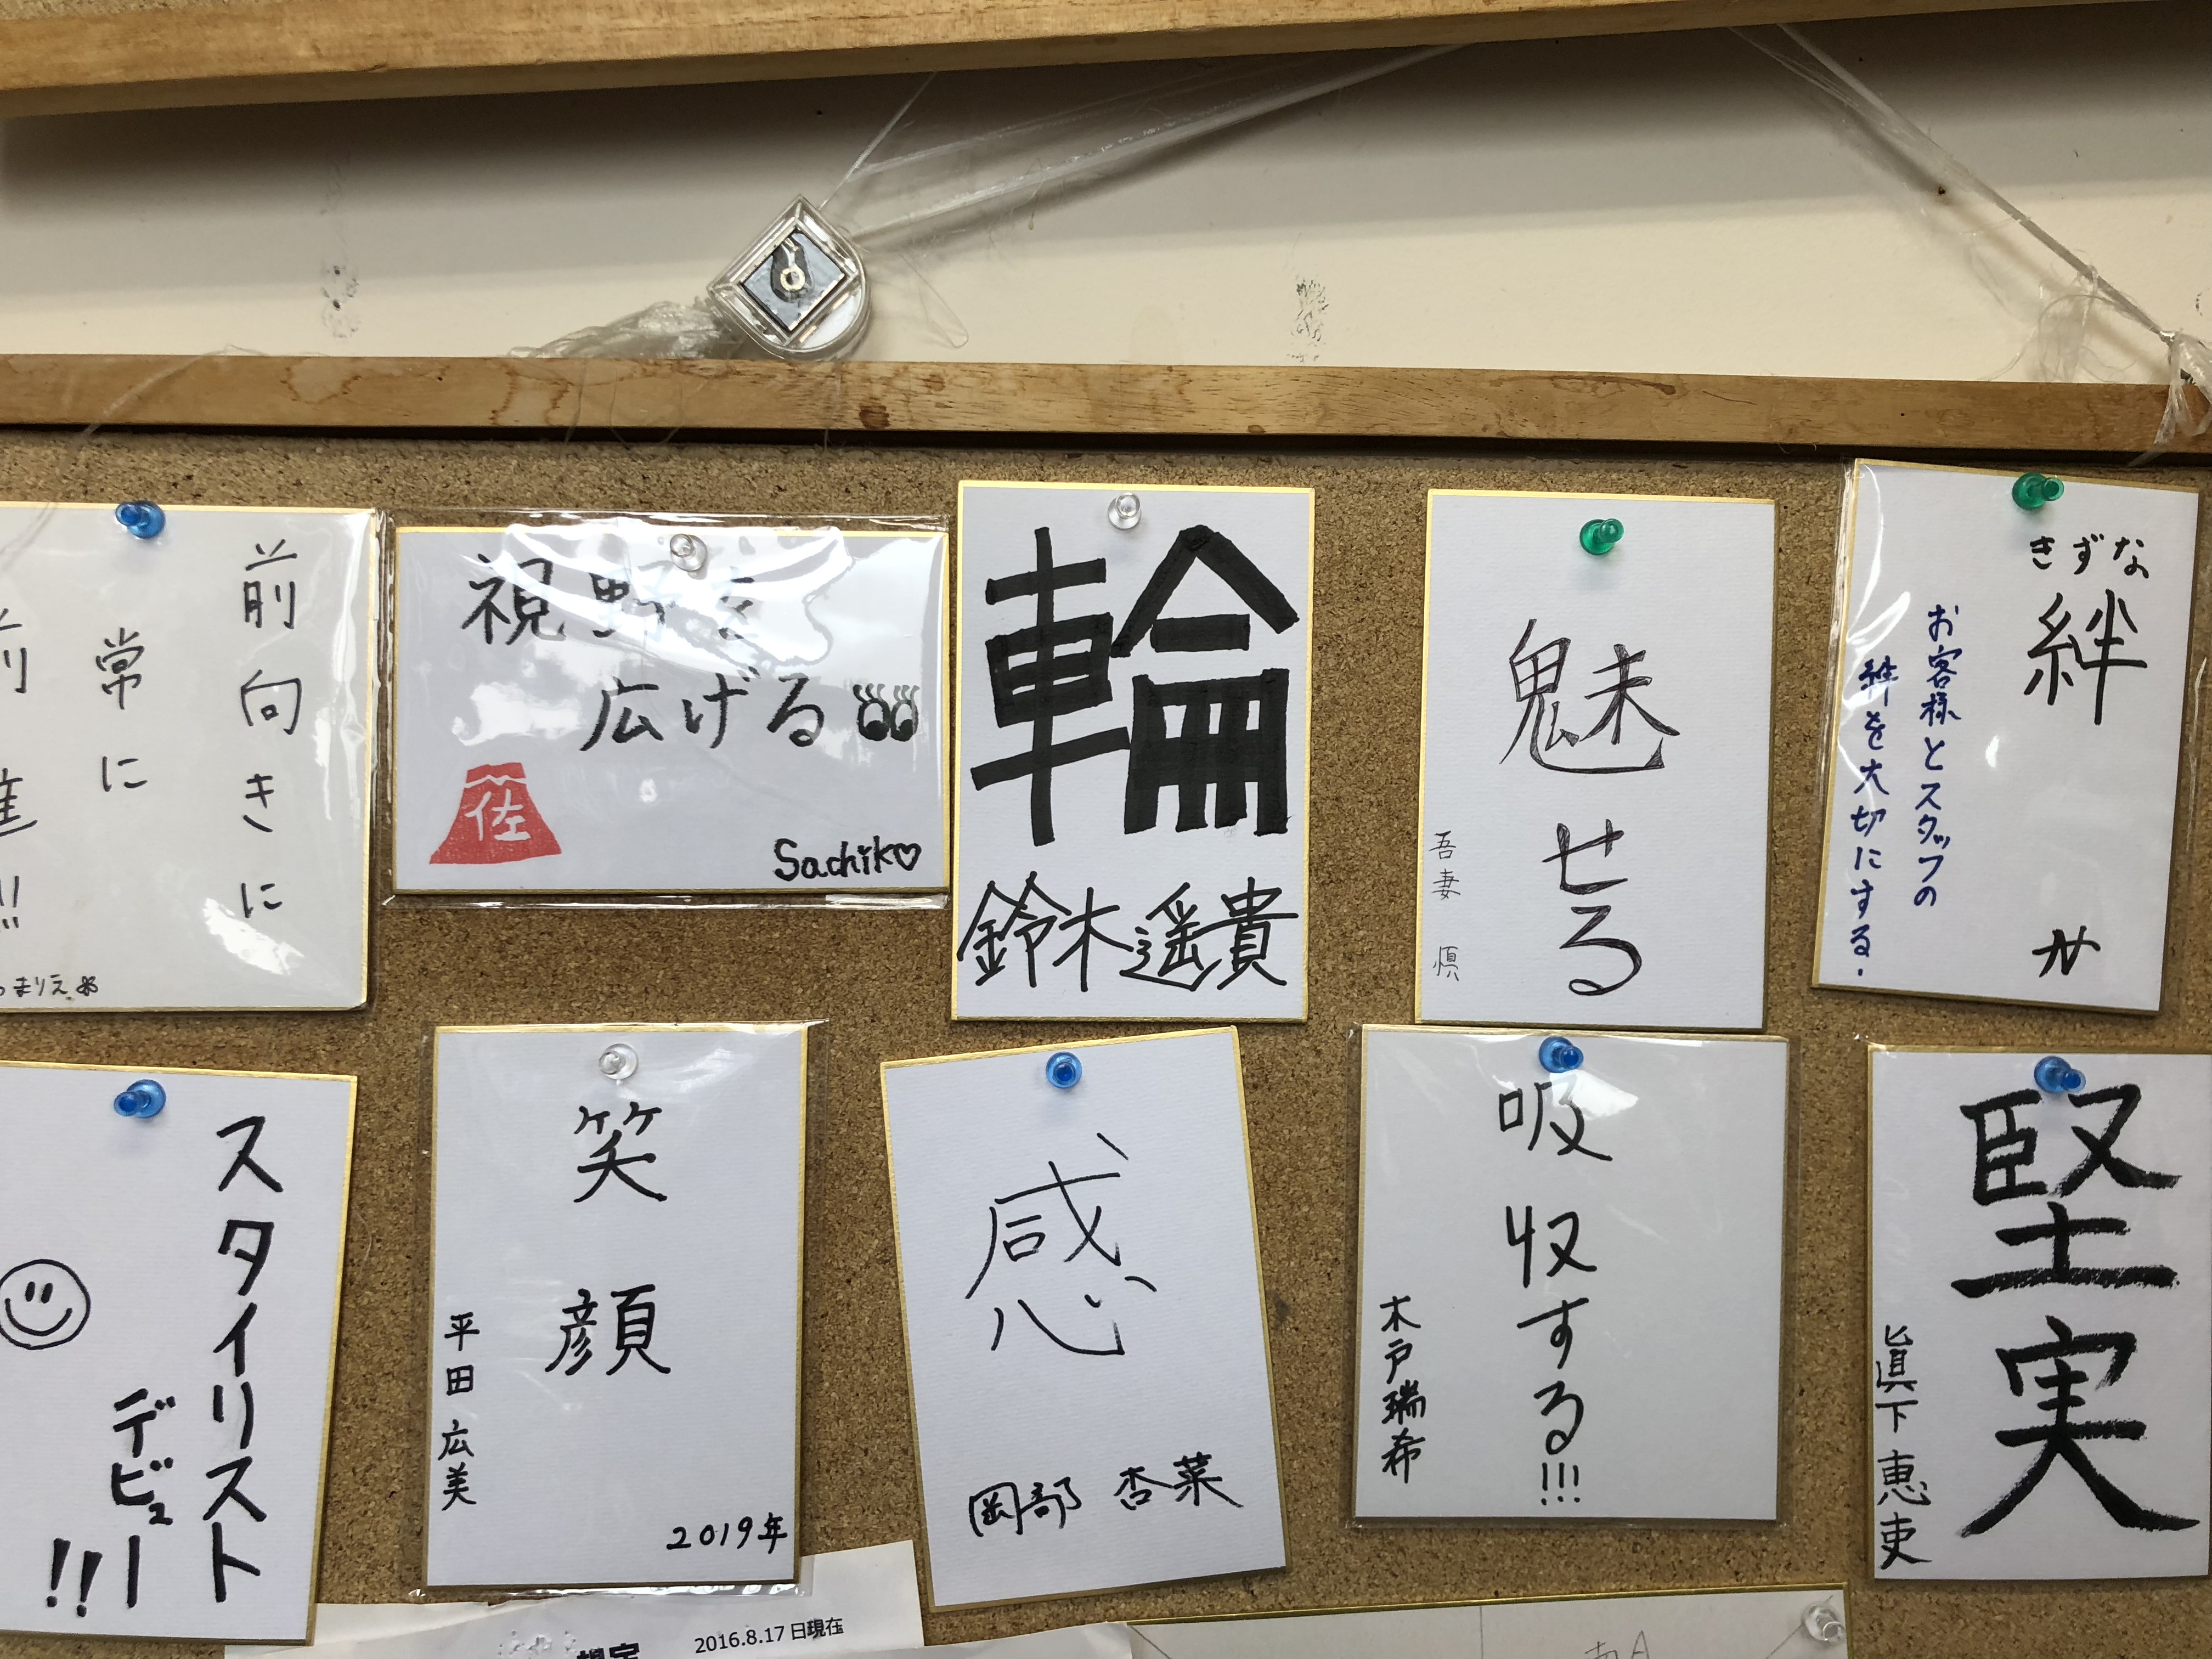 前向きに
常に
視野を
広げる
佐
Sachiko
輪
鈴木遥貴
魅せる
吾妻 慎
きずな
絆
お客様とスタッフの
絆を大切にする.
スタイリスト
デビュー
!!!
笑顔
平田広美
2019年
感
岡部 杏菜
吸収する!!!
木戸瑞希
堅実
眞下恵吏
2016.8.17日現在